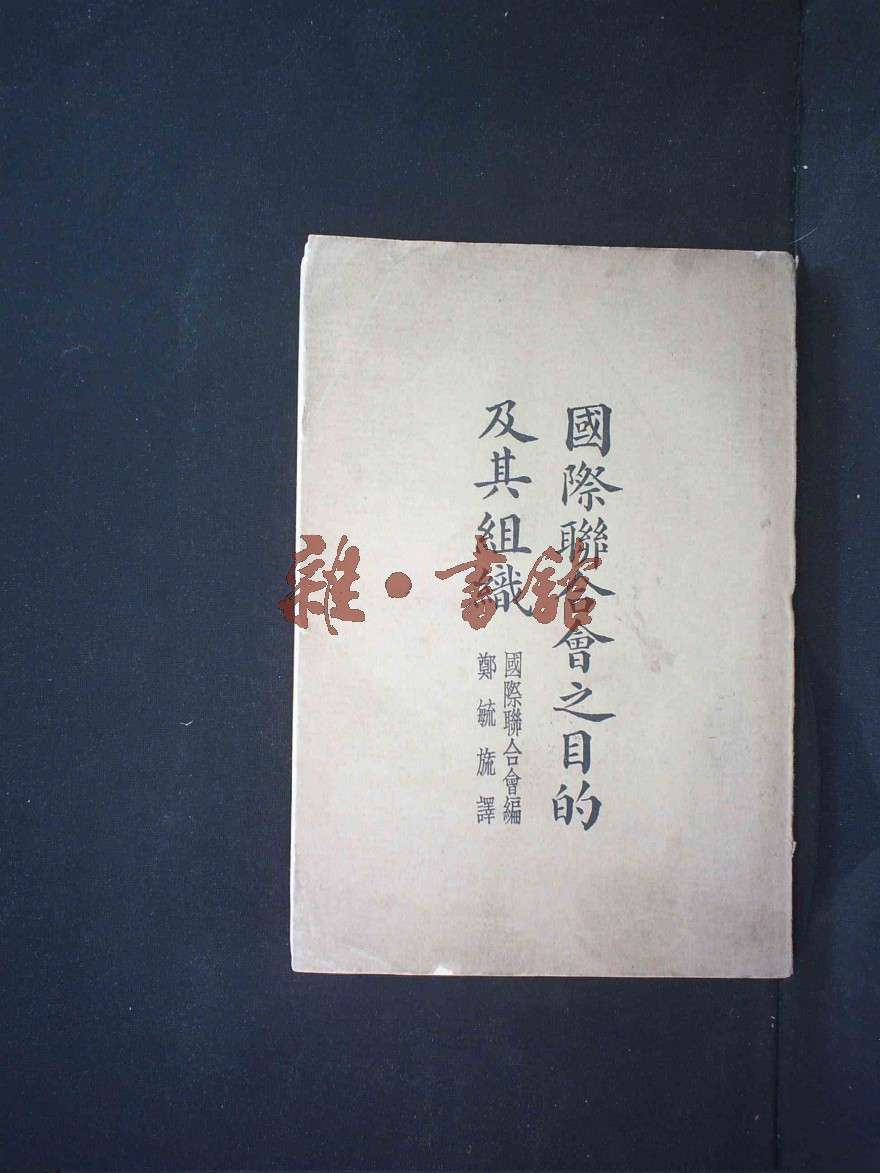 國際聯合會之目的
及其組織
國際聯合會編
鄭毓旒譯
雜·書館